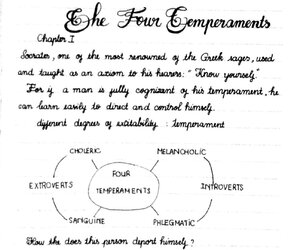 The Four Temperaments
Chapter I
Socrates, one of the most renowned of the Greek sages, used
and taught as an axiom to his hearers: "Know yourself"
For if a man is fully cognizent of his temperament, he
can learn easily to direct and control himself.
different degrees of excitability : temperament
CHOLERIC MELANCHOLIC
FOUR
TEMPERAMENTS
EXTROVERTS INTROVERTS
SANGUINE PHLEGMATIC
How the does this person deport himself?